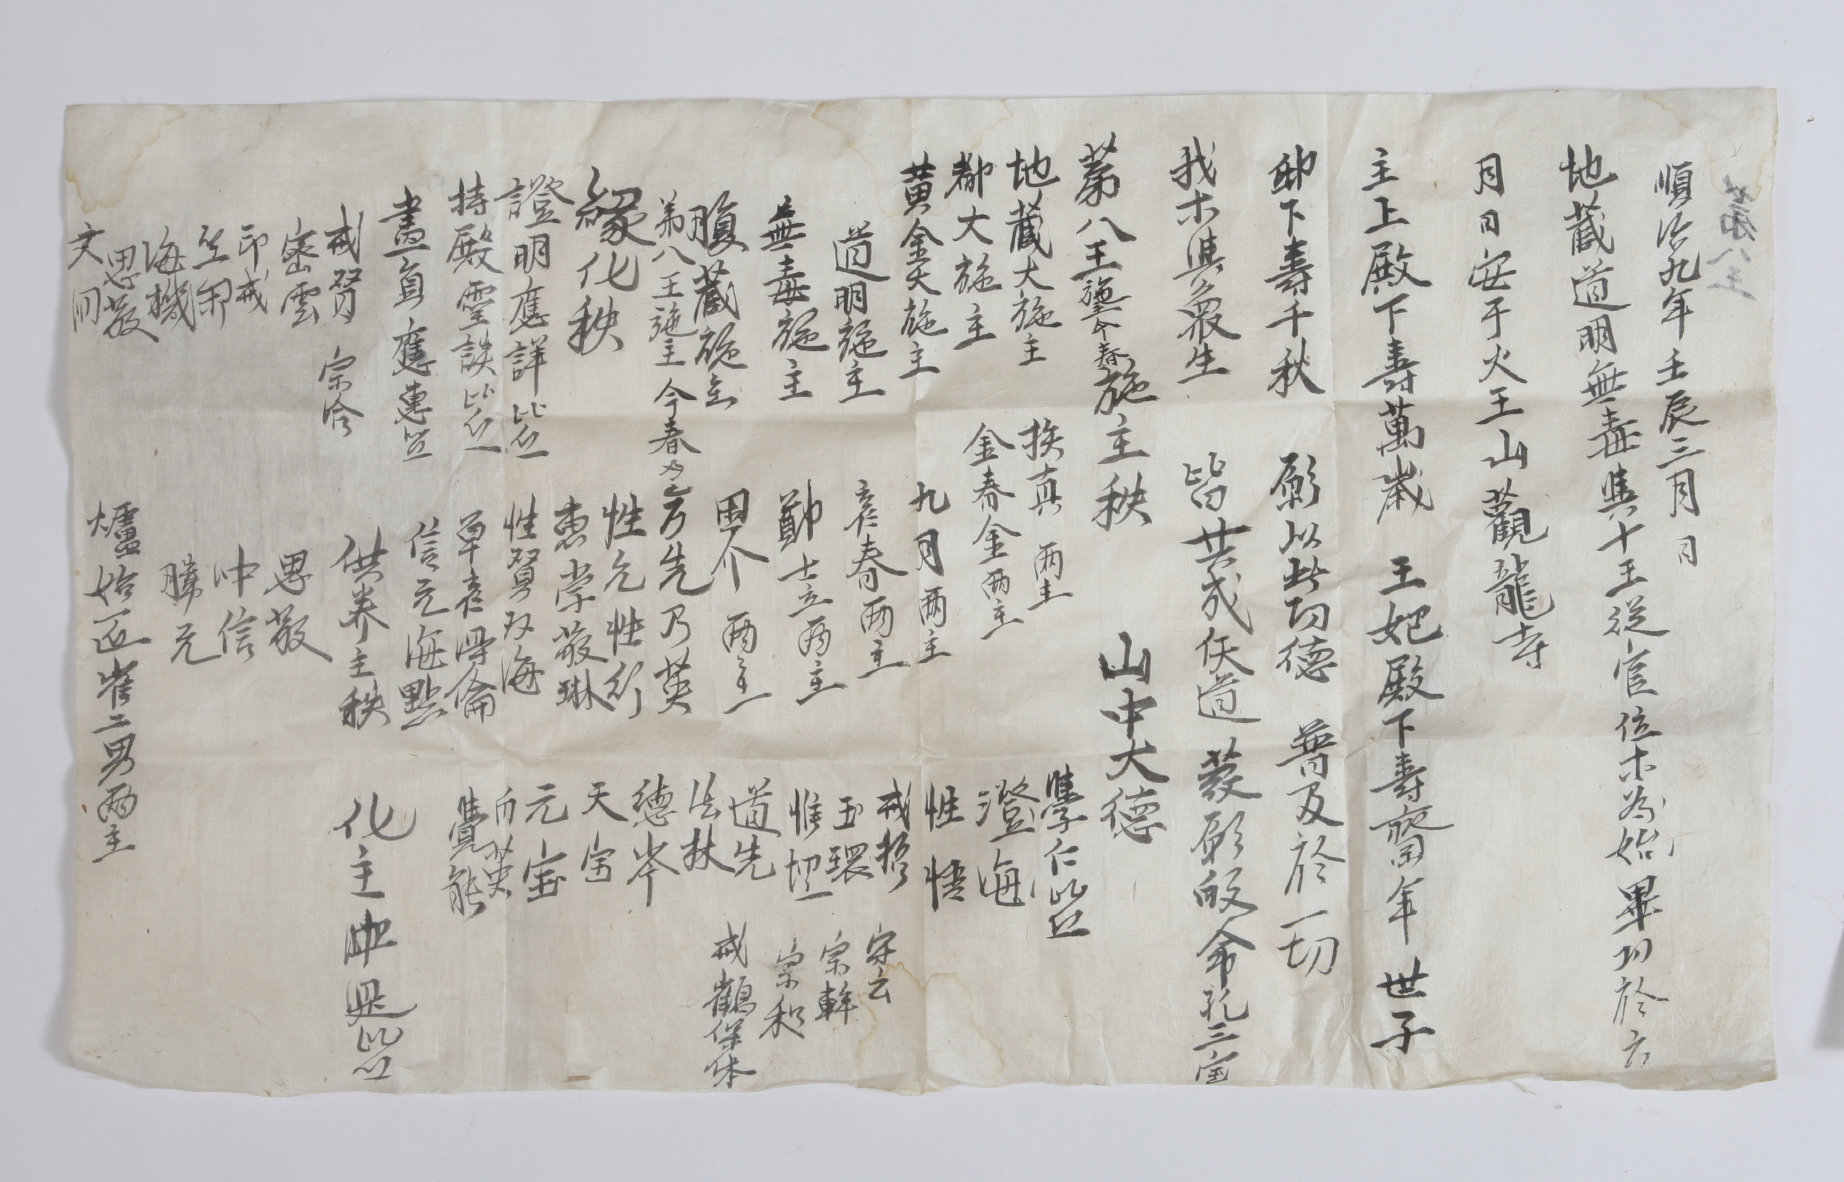 第八王
順治九年壬辰三月 日
地藏道明無毒與十王從官位木為始畢功於六
月日安于火王山觀龍寺
主上殿下壽萬歲 王妃殿下壽齊年 世子
邸下壽千秋 願以此功德 普及於一切
我木與众生 皆共成仸道 發願皈命礼三宝
第八王施主今春施主秩 山中大德
地藏大施主 真 兩主 學仁比丘
都大施主 金春金兩主 澄海
黃金大施主 九月兩主 性悟
道明施主 彦春兩主 戒 守云
無毒施主 鄭士立兩主 玉環 宗幹
腹藏施主 介 兩主 惟 宗和
第八王施主今春 方先乃英 道先 戒鶴保体
緣化秩 性允性行 法林
證明應詳比丘 惠学敬琳 德岑
持殿靈談比丘 性賢双海 天宝
畵員應惠比丘 草彦海倫 元宝
戒賢 宗冷 信元海點 英
密雲 供养主秩 覺能
印戒 思敬 化主 比丘
海機 冲信
思敬 勝元
文冏 爐冶匠崔二男兩主